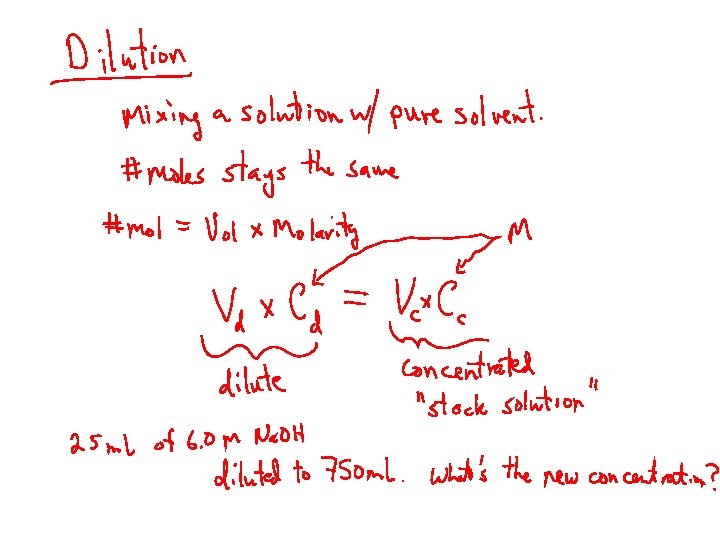 Dilution
Mixing a solution w/ pure solvent.
# moles stays the same
# mol = Vol x Molarity
M
Vd x Cd = Vc x Cc
dilute
concentrated
"stock solution"
25 mL of 6.0 M NaOH
diluted to 750 mL. What's the new concentration?